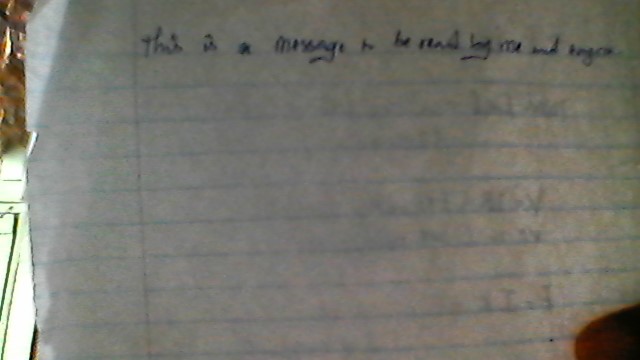 This is a message to be read by me and